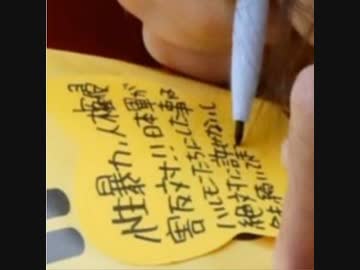 性暴力,人権侵
害反対!!!日本軍が
ハルモニたちにした事は
絶対に許せないし